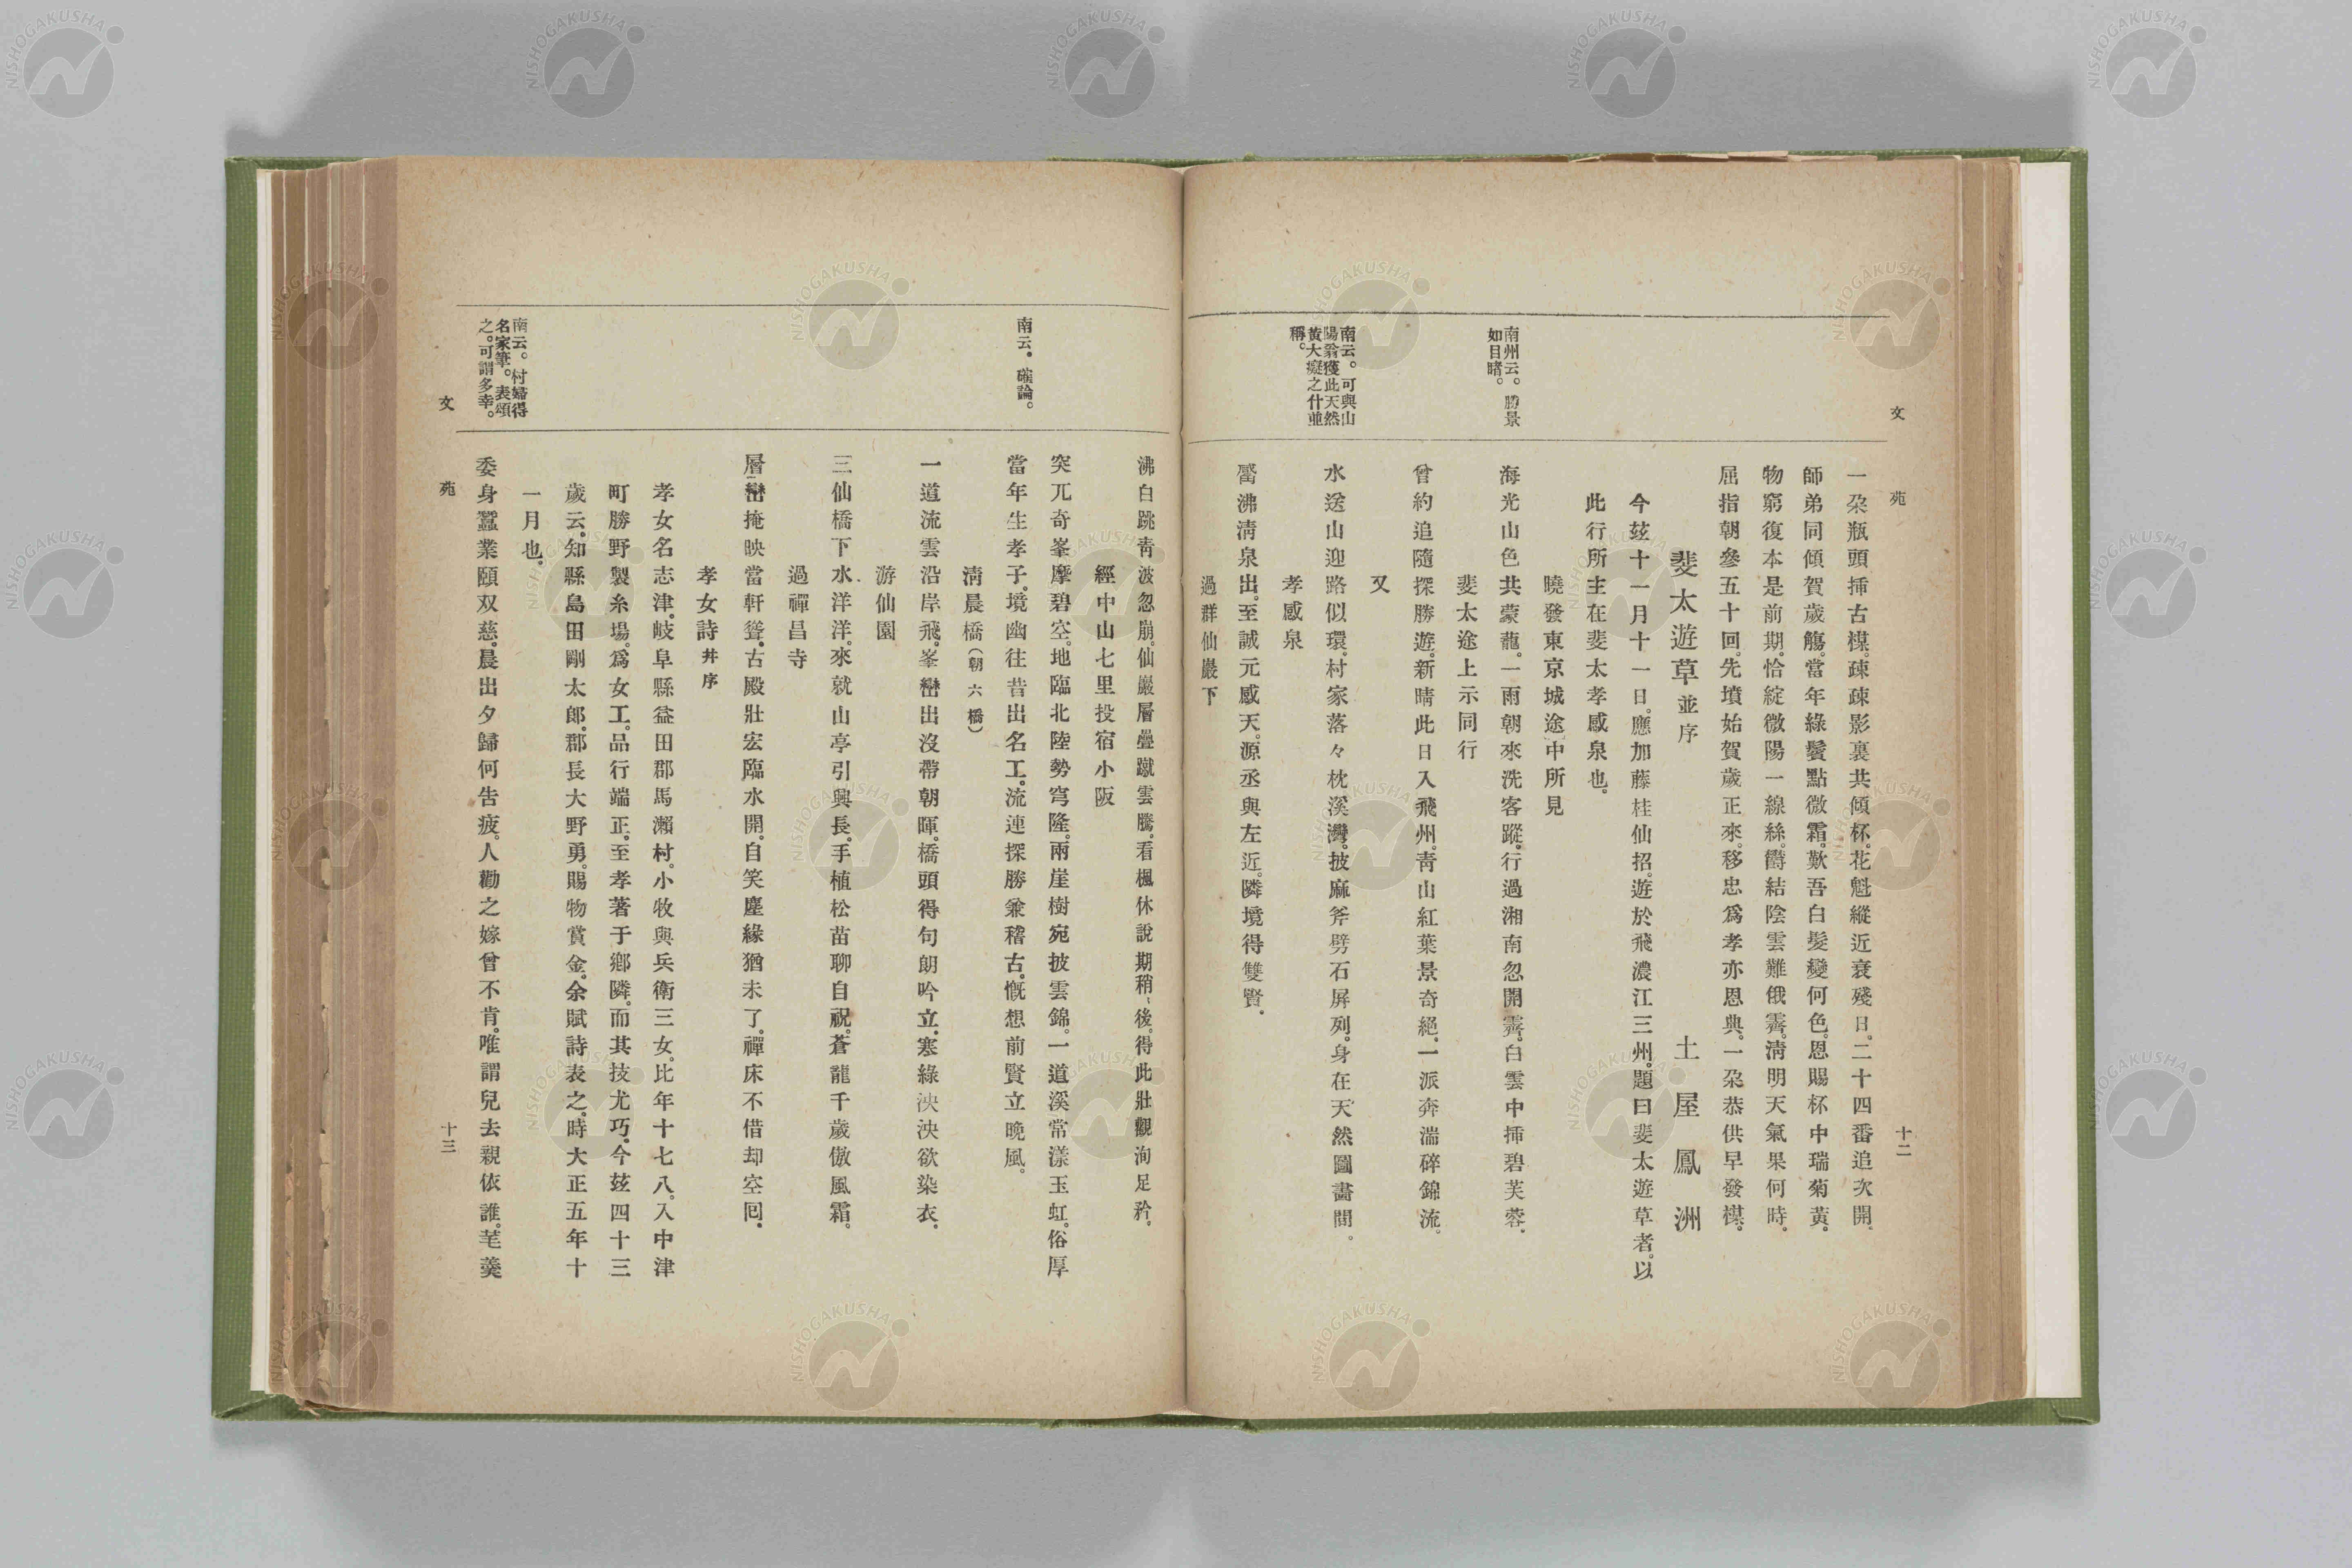 文苑
十二
一朶瓶頭挿古楳。疎疎影裏共傾杯。花魁縱近衰殘日。二十四番追次開。
師弟同傾賀歲觴。當年綠鬢點微霜。歎吾白髮變何色。恩賜杯中瑞菊黃。
物窮復本是前期。恰綻微陽一線絲。欝結陰雲難俄霽。淸明天氣果何時。
屈指朝參五十回。先墳始賀歲正來。移忠爲孝亦恩典。一朶恭供早發楳。
斐太遊草並序
土屋鳳洲
今玆十一月十一日。應加藤桂仙招。遊於飛濃江三州。題曰斐太遊草者。以
此行所主在斐太孝感泉也。
曉發東京城途中所見
海光山色共蒙蘢。一雨朝來洗客蹤。行過湘南忽開霽。白雲中挿碧芙蓉。
南州云。勝景
如目睹。
斐太途上示同行
曾約追隨探勝遊。新晴此日入飛州。靑山紅葉景奇絕。一派奔湍碎錦流。
又
水送山迎路似環。村家落々枕溪灣。披麻斧劈石屛列。身在天然圖畵間。
南云。可與山
陽翁獲此天然
黃大癡之什並
稱。
孝感泉
觱沸淸泉出。至誠元感天。源丞與左近。隣境得雙賢。
過群仙巖下
沸白跳靑波忽崩。仙巖層疊蹴雲騰。看楓休說期稍、後。得此壯觀洵足矜。
經中山七里投宿小阪
突兀奇峯摩碧空。地臨北陸勢穹隆。兩崖樹宛披雲錦。一道溪常漾玉虹。俗厚
當年生孝子。境幽往昔出名工。流連探勝兼稽古。慨想前賢立晚風。
南云。確論。
淸晨橋（朝六橋）
一道流雲沿岸飛。峯巒出沒帶朝暉。橋頭得句朗吟立。寒綠泱泱欲染衣。
游仙園
三仙橋下水洋洋。來就山亭引興長。手植松苗聊自祝。蒼龍千歲傲風霜。
過禪昌寺
層巒掩映當軒聳。古殿壯宏臨水開。自笑塵緣猶未了。禪床不借却空回。
孝女詩幷序
孝女名志津。岐阜縣益田郡馬瀨村。小牧與兵衛三女。比年十七八。入中津
町勝野製糸場。爲女工。品行端正。至孝著于鄕隣。而其技尤巧。今玆四十三
歲云。知縣島田剛太郞。郡長大野勇。賜物賞金。余賦詩表之。時大正五年十
一月也。
委身蠶業頤双慈。晨出夕歸何吿疲。人勸之嫁曾不肯。唯謂兒去親依誰。芼羹
南云。村婦得
名家筆。表頌
之。可謂多幸。
文苑
十三